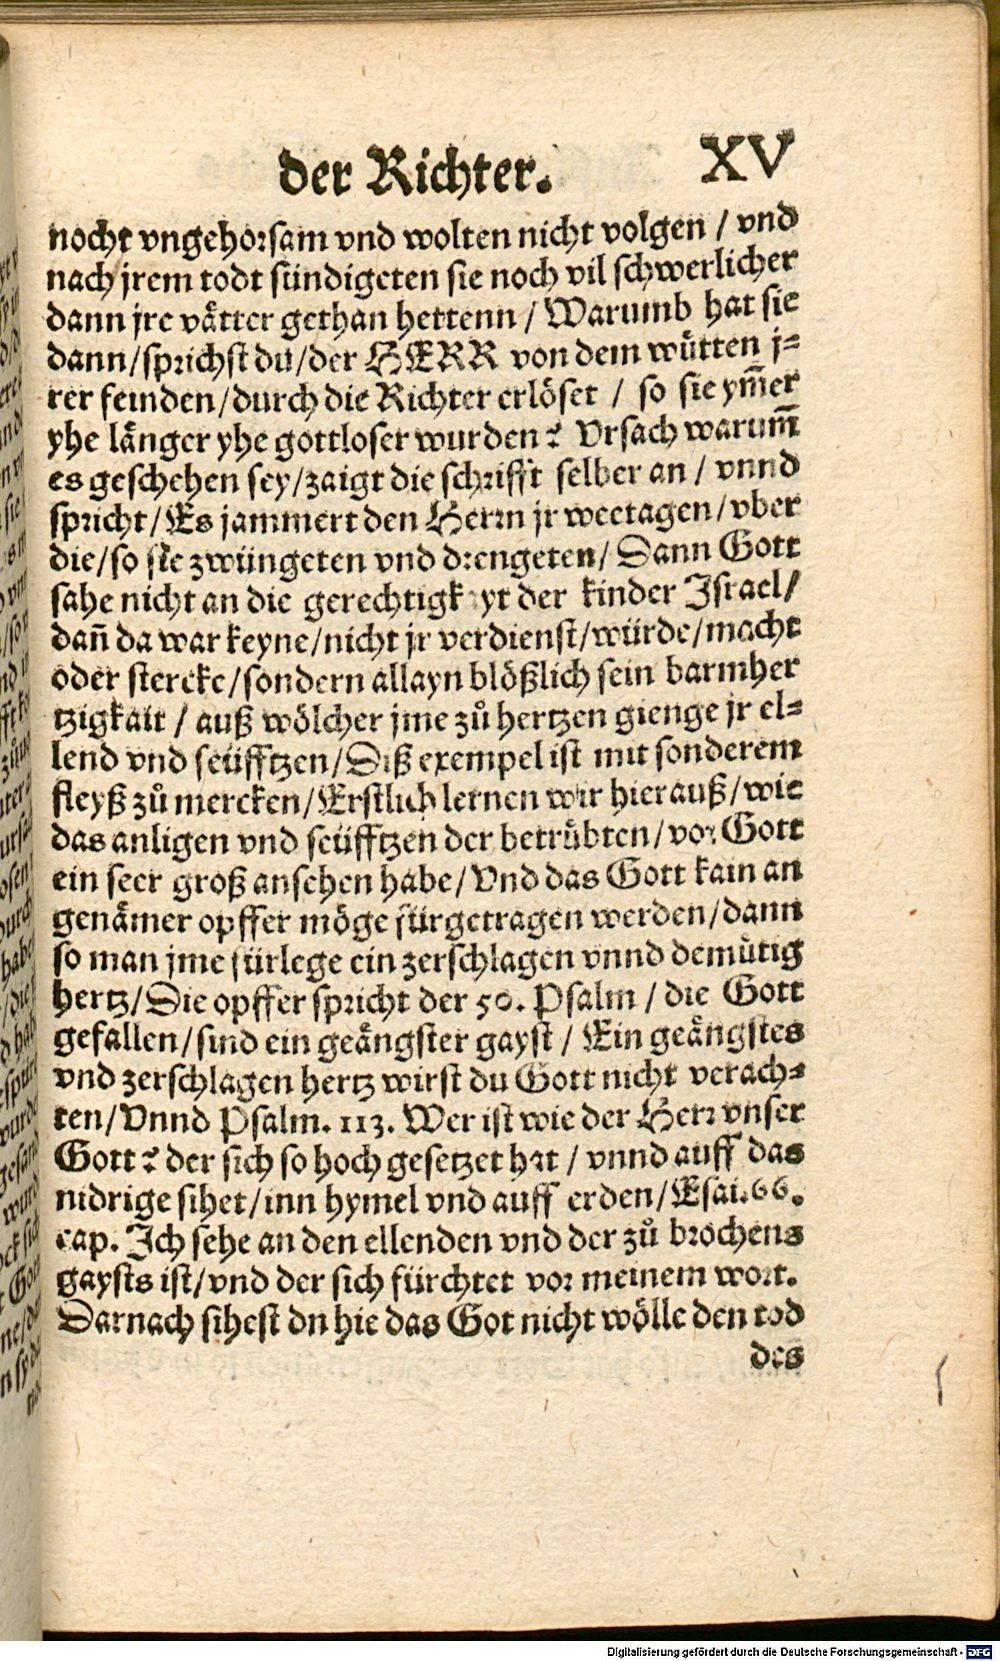 der Richter. XV
nocht vngehorsam vnd wolten nicht volgen / vnd
nach jrem todt sündigeten sie noch vil schwerlicher
dann jre vätter gethan hettenn / Warumb hat sie
dann/sprichst du/der HERR von dem wütten j⸗
rer feinden/durch die Richter erlöset / so sie ym̄er
yhe länger yhe gottloser wurden? Vrsach warum̄
es geschehen sey/zaigt die schrifft selber an / vnnd
spricht/Es jammert den Herrn jr weetagen/vber
die/so sie zwüngeten vnd drengeten/Dann Gott
sahe nicht an die gerechtigkayt der kinder Israel/
dañ da war keyne/nicht jr verdienst/würde/macht
oder stercke/sondern allayn blößlich sein barmher
tzigkait / auß wölcher jme zů hertzen gienge jr el⸗
lend vnd seüfftzen/Diß exempel ist mit sonderem
fleyß zů mercken/Erstlich lernen wir hierauß/wie
das anligen vnd seüfftzen der betrübten/vor Gott
ein seer groß ansehen habe/Vnd das Gott kain an
genämer opffer möge fürgetragen werden/dann
so man jme fürlege ein zerschlagen vnnd demütig
hertz/Die opffer spricht der 50. Psalm / die Gott
gefallen/sind ein geängster gayst / Ein geängstes
vnd zerschlagen hertz wirst du Gott nicht verach⸗
ten/Vnnd Psalm. 113. Wer ist wie der Herr vnser
Gott? der sich so hoch gesetzet hat / vnnd auff das
nidrige sihet/inn hymel vnd auff erden/Esai.66.
cap. Ich sehe an den ellenden vnd der zů brochens
gaysts ist/vnd der sich fürchtet vor meinem wort.
Darnach sihest dn hie das Got nicht wölle den tod
des
Digitalisierung gefördert durch die Deutsche Forschungsgemeinschaft - DFG